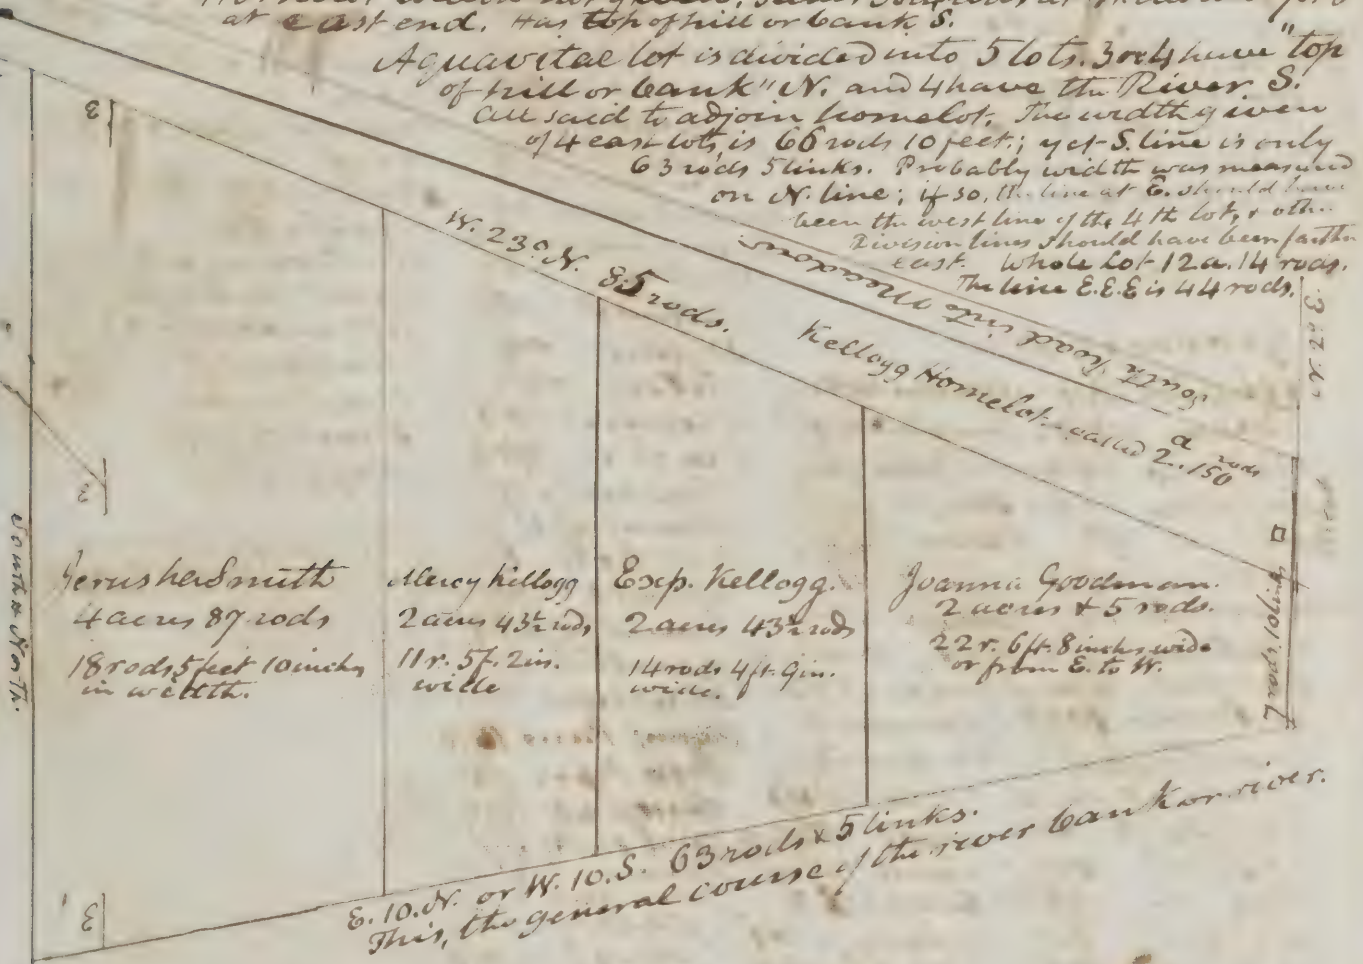 at east end. Has top of hill or bank S.
Aquavitae lot is divided into 5 lots. 3 or 4 have "top
of hill or bank" N. and 4 have the River S.
All said to adjoin homelot. The width given
of 4 east lots is 66 rods 10 feet; yet S. line is only
63 rods 5 links. Probably width was measured
on N. line; if so, the line at E. should have
been the west line of the 4th lot, & oth..
Division lines should have been farther
east. Whole Lot 12 a. 14 rods.
The line E.E.E is 44 rods.
South Road into Meadow
W. 23° N. 85 rods.
Kellogg Homelot called 2 a 150 rods
E
E
E
South & North.
Jerusha Smith
4 acres 87 rods
18 rods 5 feet 10 inches
in width.
Mercy Kellogg
2 acres 43½ rods
11 r. 5 f. 2 in.
wide
Exp. Kellogg.
2 acres 43½ rods
14 rods 4 ft. 9 in.
wide.
Joanna Goodman.
2 acres & 5 rods.
22 r. 6 ft. 8 inches wide
or from E. to W.
7 rods, 10 links
E. 10. N. or W. 10. S. 63 rods & 5 links.
This, the general course of the river bank or river.